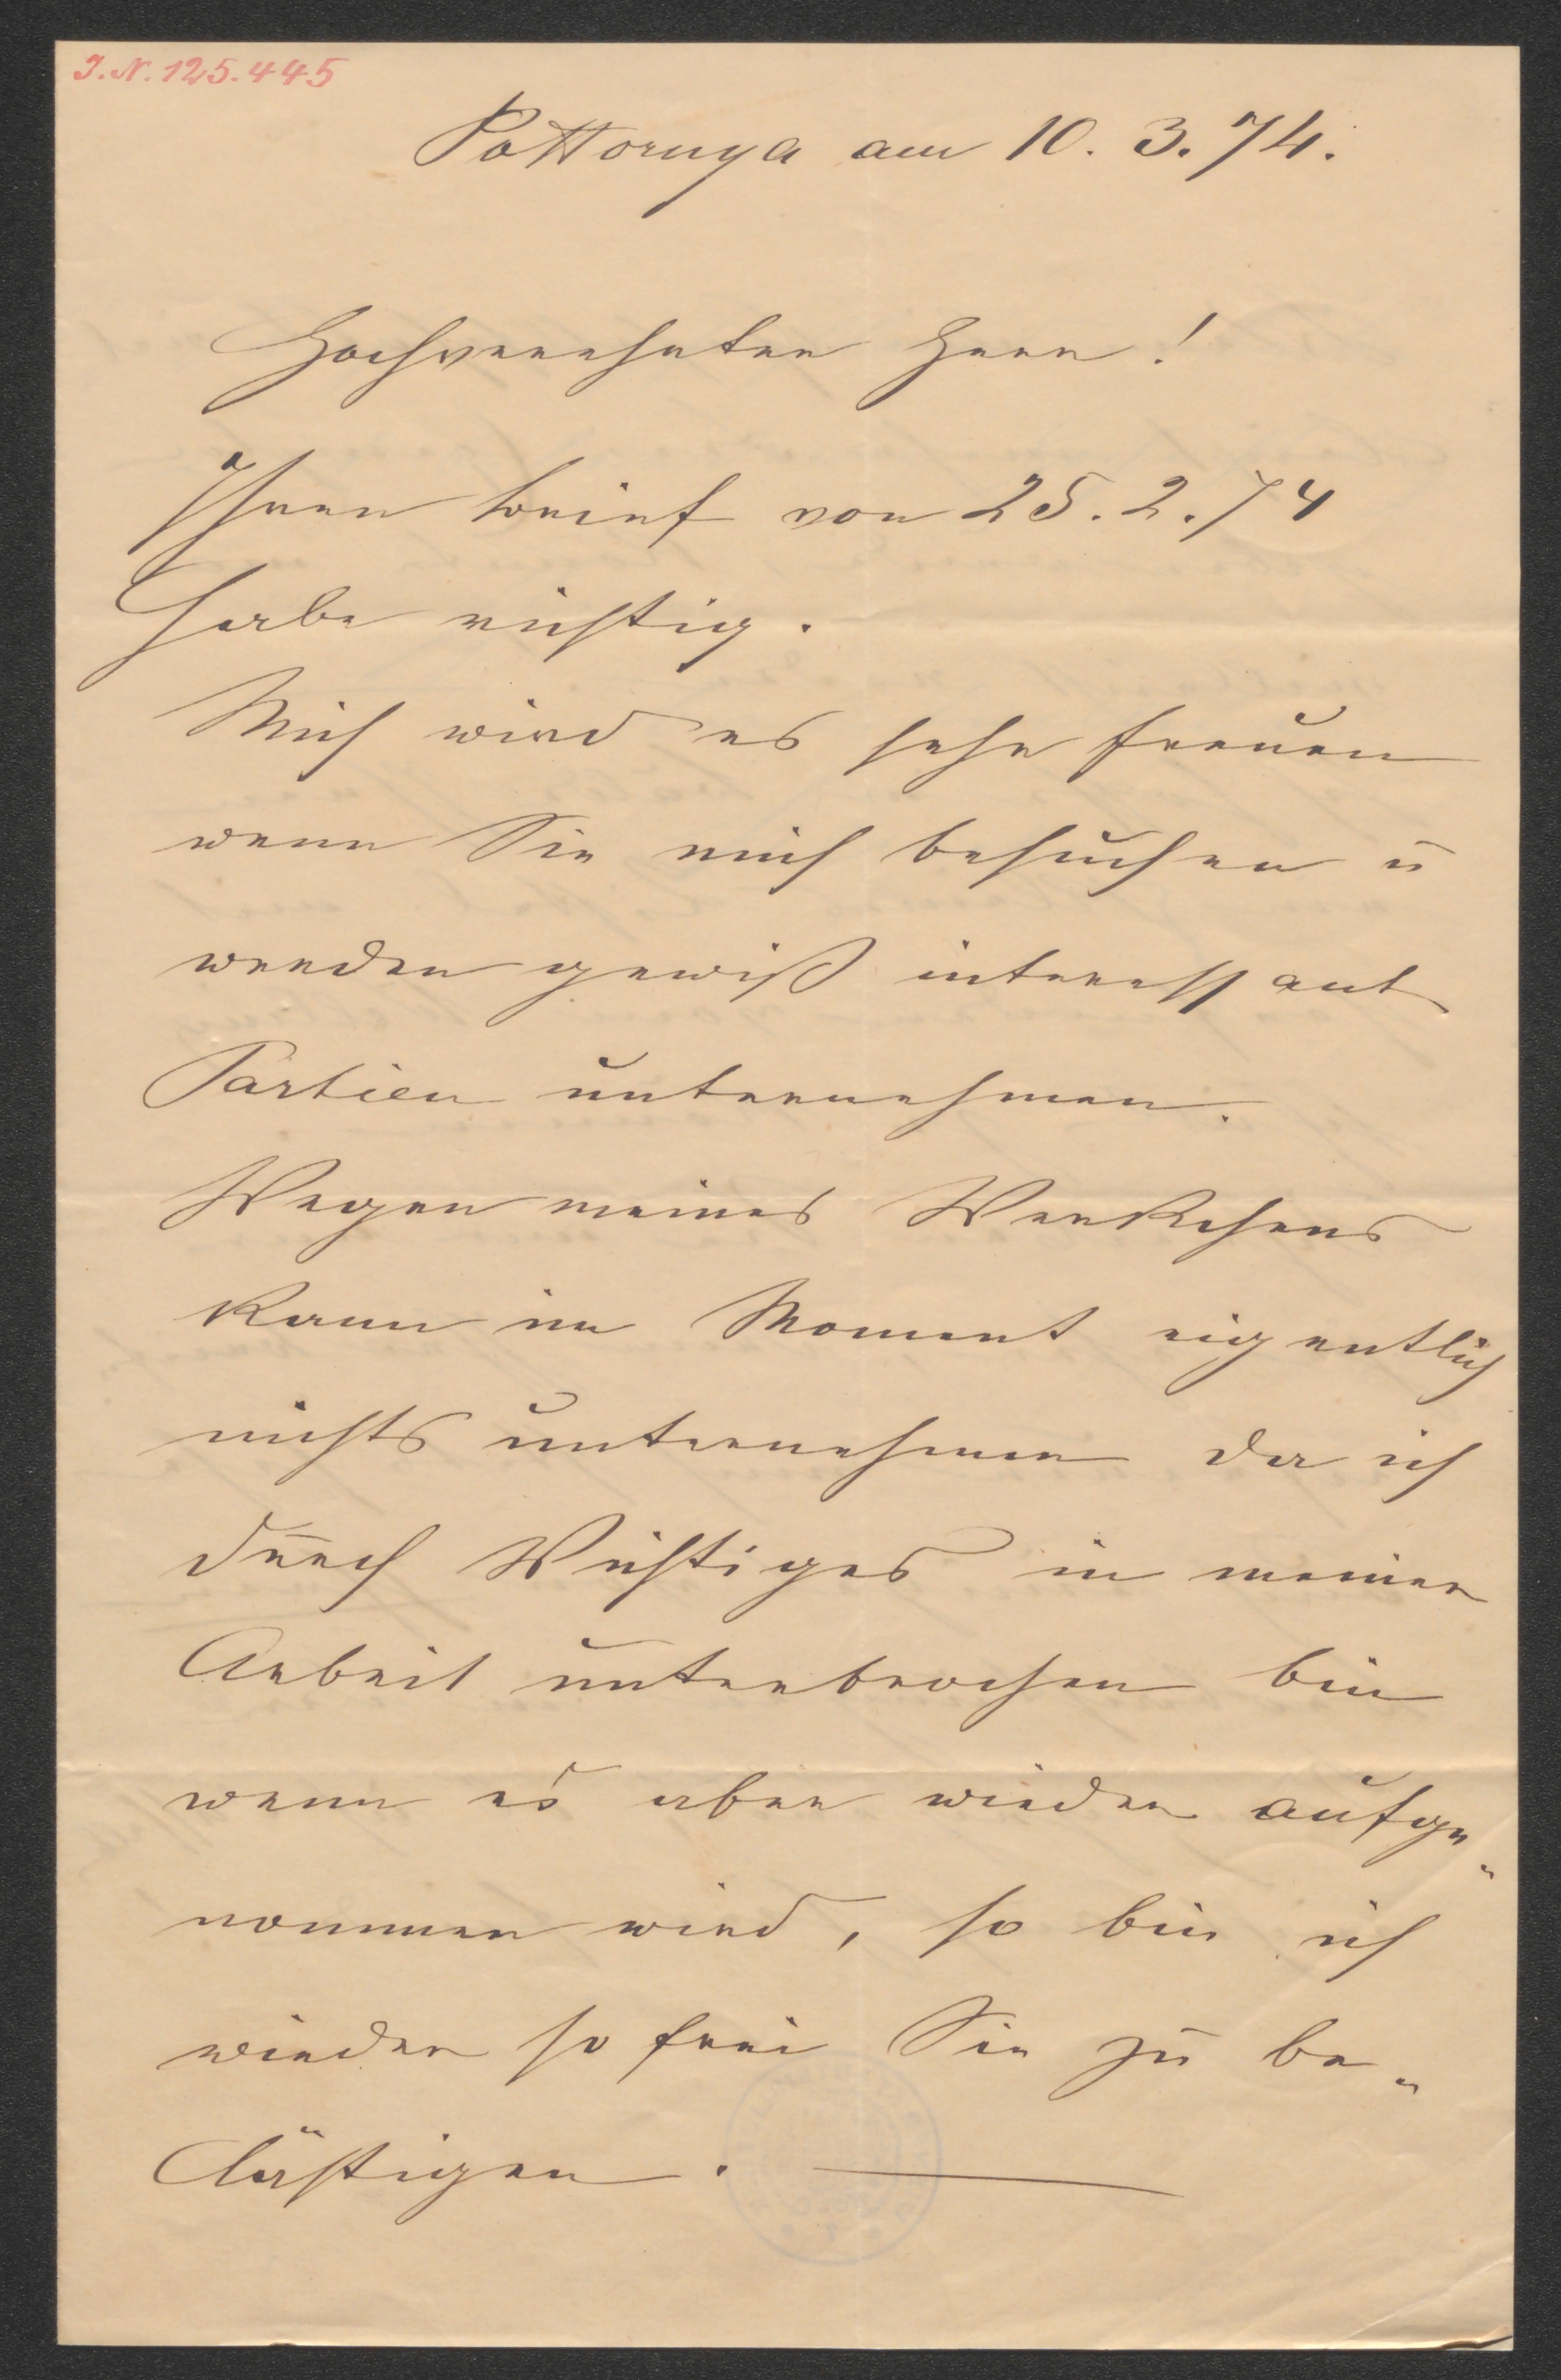 J.N. 125.445
Pottornya am 10. 3. 74.
Hochverehrter Herr!
Ihren brief von 25. 2. 74
habe richtig.
Mich wird es sehr freuen
wenn Sie mich besuchen u
werden gewiß interessant
Partien unternehmen.
Wegen meines Werkchens
kann im Moment eigentlich
nichts unternehmen da ich
durch Wichtiges in meiner
Arbeit unterbrochen bin
wenn es aber wieder aufge„
nommen wird, so bin ich
wieder so frei Sie zu be„
lästigen. —